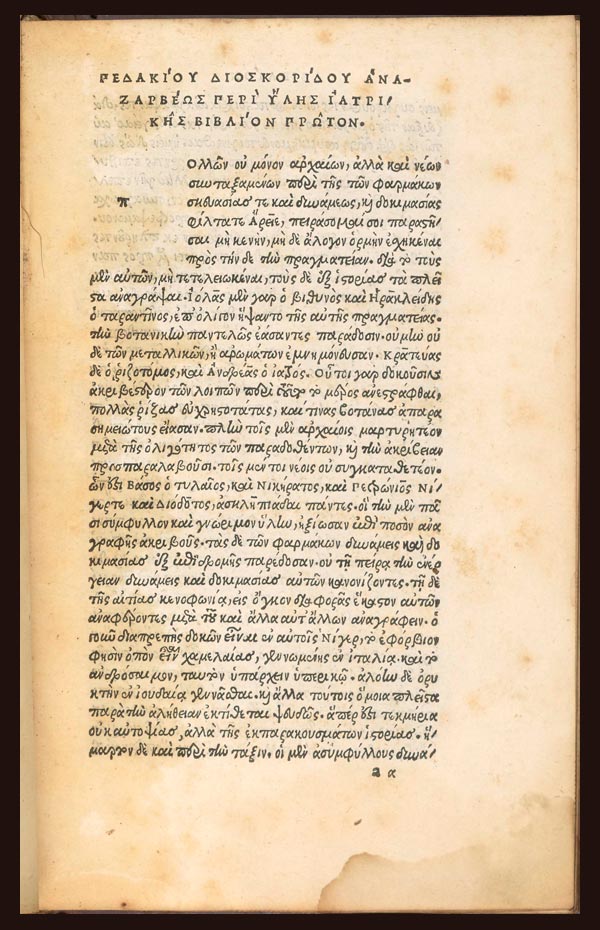 ΠΕΔΑΚΙΟΥ ΔΙΟΣΚΟΡΙΔΟΥ ἈΝΑ-
ΖΑΡΒΈΩΣ ΠΕΡῚ ὝΛΗΣ ἸΑΤΡΙ/
ΚΗ͂Σ ΒΙΒΛΊΟΝ ΠΡΩ͂ΤΟΝ.
π
Ολλῶν οὐ μόνον ἀρχαίων, ἀλλὰ καὶ νέων
συνταξαμένων περὶ τῆς τῶν φαρμάκων
σκευασίας τε καὶ δυνάμεως, καὶ δοκιμασίας
φίλτατε Ἄρειε, πειράσομαί σοι παραστῆ/
σαι μὴ κενὴν, μὴ δὲ ἄλογον ὁρμὴν ἐσχηκέναι
πρὸς τήν δε τὴν πραγματείαν. διὰ τὸ τοὺς
μὲν αὐτῶν, μὴ τετελειωκέναι, τοὺς δὲ ἐξ ἱστορίας τὰ πλεῖ
στα ἀναγράψαι. Ἰολᾶς μὲν γὰρ ὁ βιθυνὸς καὶ Ἡρακλείδης
ὁ ταραντῖνος, ἐπ' ὀλίγον ἥψαντο τῆς αὐτῆς πραγματείας.
τὴν βοτανικὴν παντελῶς ἐάσαντες παράδοσιν. οὐ μὴν οὐ
δὲ τῶν μεταλλικῶν, ἢ ἀρωμάτων ἐμνημόνευσαν. Κρατεύας
δὲ ὁ ῥιζοτόμος, καὶ Ἀνδρέας ὁ ἰατρός. Οὗτοι γὰρ δοκοῦσι
ἀκριβέστερον τῶν λοιπῶν περὶ τὸ μέρος ἀνεστράφθαι,
πολλὰς ῥίζας εὐχρηστοτάτας, καί τινας βοτάνας ἀπαρα
σημειώτους εἴασαν. πλὴν τοῖς μὲν ἀρχαίοις μαρτυρητέον
μετὰ τῆς ὀλιγότητος τῶν παραδοθέντων, καὶ τὴν ἀκρίβειαν
προσπαραλαβοῦσι. τοῖς μέντοι νέοις οὐ συγκαταθετέον.
ὧν ἐστι Βάσος ὁ τυλαῖος, καὶ Νικήρατος, καὶ Πετρώνιός Νί/
γερτε καὶ Διόδοτος, ἀσκληπιάδαι πάντες. οἳ τὴν μὲν πᾶ
σι σύμφυλλον καὶ γνώριμον ὕλην, ἠξίωσαν ἐπὶ ποσὸν ἀνα
γραφῆς ἀκριβοῦς. τὰς δὲ τῶν φαρμάκων δυνάμεις καὶ δο
κιμασίας ἐξ ἐπιδρομῆς παρέδοσαν. οὐ τῇ πείρᾳ τὴν ἐνέρ
γειαν δυνάμεις καὶ δοκιμασίας αὐτῶν κανονίζοντες. τῇ δὲ
τῆς αἰτίας κενοφωνίᾳ, εἰς ὄγκον διαφορᾶς ἕκαστον αὐτῶν
ἀναφέροντες μετὰ τοῦ καὶ ἄλλα αὐτ' ἄλλων ἀναγράφειν. ὁ
γοῦν διαπρεπὴς δοκῶν εἶναι ἐν αὐτοῖς Νίγερ, τὸ εὐφόρβιον
φησὶν ὀπὸν εἶναι χαμελαίας, γεννωμένης ἐν ἰταλίᾳ. καὶ τὸ
ἀνδρόσαιμον, ταυτὸν ὑπάρχειν ὑπερικῷ. ἀλόην δὲ ὀρυ
κτὴν ἐν ἰουδαίᾳ γεννᾶσθαι. καὶ ἄλλα τούτοις ὅμοια πλεῖστα
παρὰ τὴν ἀλήθειαν ἐκτίθεται ψευδῶς. ἅπέρ ἐστι τεκμήρια
οὐκ αὐτοψίας, ἀλλὰ τῆς ἐκ παρακουσμάτων ἱστορίας. ἥ/
μαρτον δὲ καὶ περὶ τὴν τάξιν. οἱ μὲν ἀσυμφύλλους δυνά/
a α